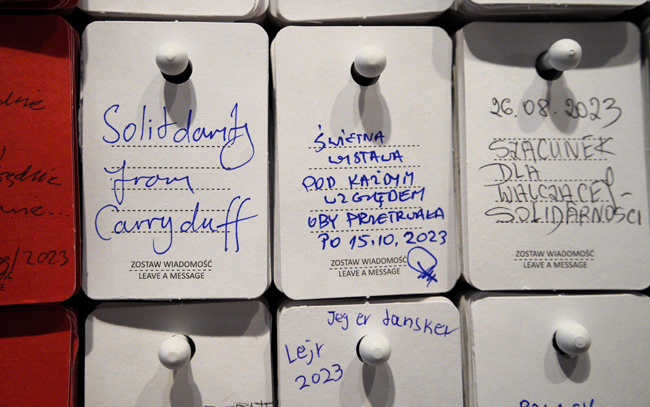 Soliddarity
from
Carryduff
ZOSTAW WIADOMOŚĆ
LEAVE A MESSAGE
ŚWIETNA
WYSTAWA
POD KAŻDYM
WZGLĘDEM
OBY PRZETRWAŁA
PO 15.10.2023
ZOSTAW WIADOMOŚĆ
LEAVE A MESSAGE
26.08.2023
SZACUNEK
DLA
WALCZĄCEJ
SOLIDARNOŚCI
ZOSTAW WIADOMOŚĆ
LEAVE A MESSAGE
Jeg er dansker
Lejr
2023